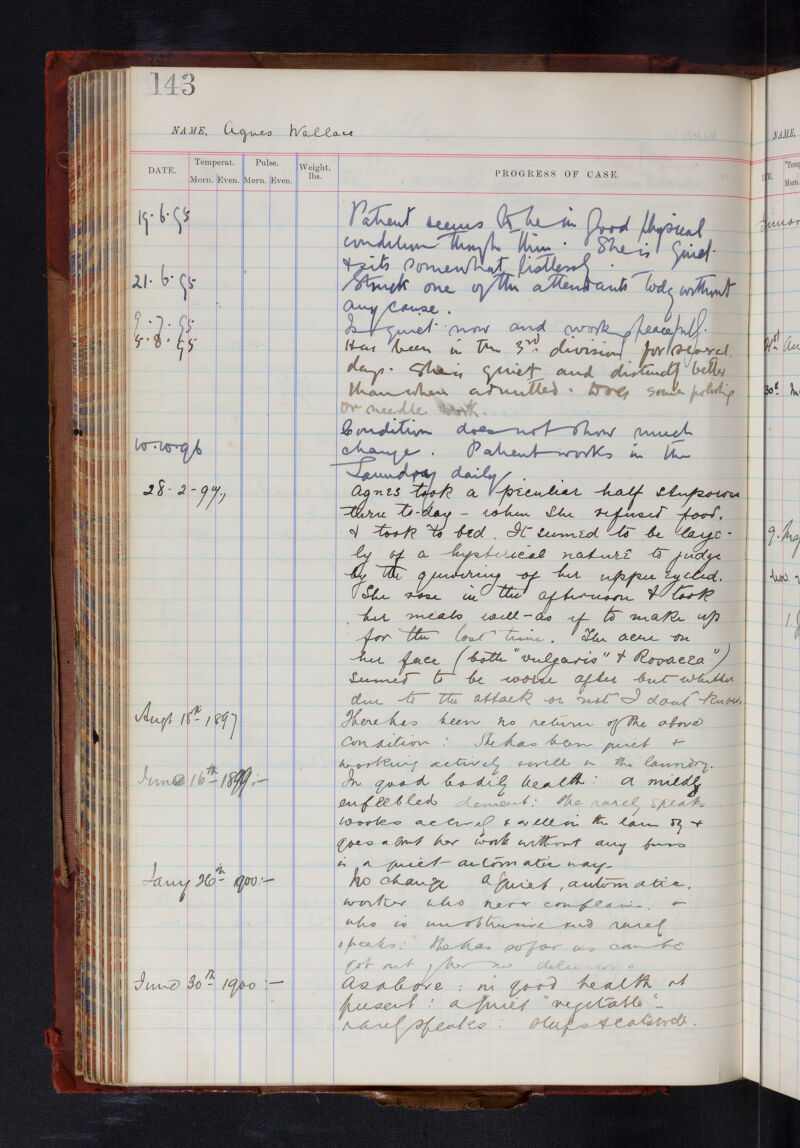 143
NAME, Agnes Wallace
NAME,
DATE. Temperat. Pulse. Weight. lbs. PROGRESS OF CASE.
Morn. Even. Morn. Even.
19.6.95 Patient seems to be in good physical
condition though thin. She is quiet
& sits somewhat listlessly.
21.6.95 Struck one of the attendants today without
any cause.
9.7.95 Is quiet now and works peacefully.
5.8.95 Has been in the 3rd division for several
days. She is quiet and distinctly better
than when admitted. Does some polishing
or needle work.
Condition does not show much
10.10.96 change. Patient works in the
Laundry daily
28-2-97, Agnes took a peculiar half stuporous
turn to-day - when she refused food,
& took to bed. It seemed to be large-
ly of a hysterical nature to judge
by the quivering of her upper eyelid.
She rose in the afternoon & took
her meals well - as if to make up
for the lost time. The acne on
her face (both "vulgaris" & Rosacea")
seemed to be worse after but whether
due to the attack or not I don't know
Augt 18th 1897 There has been no return of the above
condition: She has been quiet &
working actively & well in the laundry.
June 16th 1899:- In good bodily health: a mildly
enfeebled dement: She rarely speaks
works actively & well in the laundry &
goes about her work without any fuss
in a quiet automatic way-
Jany 26th 1900:- No change A quiet, automatic,
worker who never complains &
who is unobtrusive and rarely
speaks: She has so far as can be
got out of her no delusions
June 30th 1900:- As above: in good health at
present: a quiet "vegetable" -
rarely speaks: sleeps & eats well.